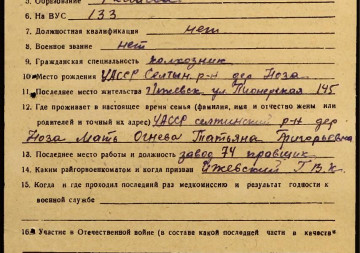 5. Образование
6. На ВУС 133
7. Должностная квалификация нет
8. Военное звание нет
9. Гражданская специальность колхозник
10. Место рождения УАССР Селтын. р-н дерНоза.
11. Последнее место жительства г Ижевск ул Пионерская 145
12. Где проживает в настоящее время семья (фамилия, имя и отчество жены или
родителей и точный их адрес) УАССР селтинский р-н дер
Ноза Мать Огнева Татьяна Григорьевна
13. Последнее место работы и должность завод 74 правщик
14. Каким райгорвоенкоматом и когда призван Ижевский Г.В.К.
15. Когда и где проходил последний раз медкомиссию и результат годности к
военной службе
16. Участие в Отечественной войне (в составе какой последней части и качестве